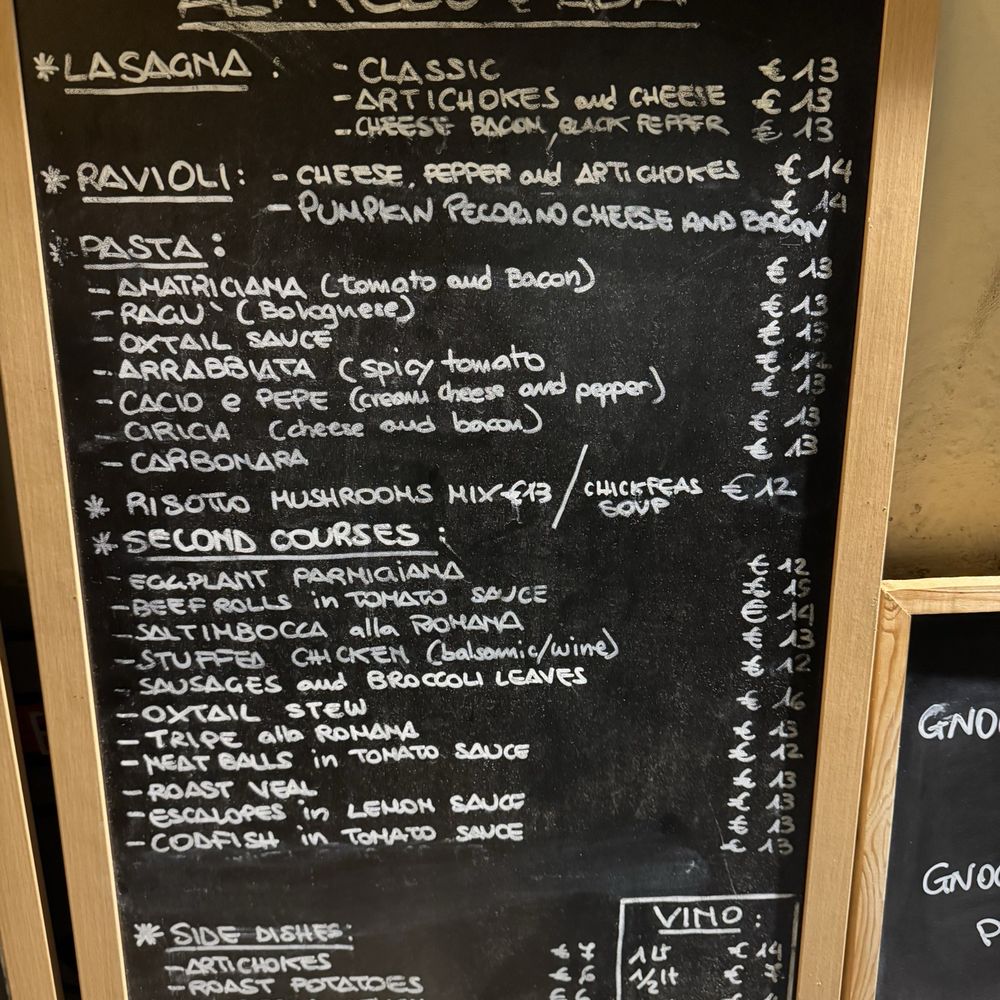 ALFREDO e ADA
* LASAGNA : - CLASSIC € 13
- ARTICHOKES and CHEESE € 13
- CHEESE BACON, BLACK PEPPER € 13
* RAVIOLI : - CHEESE, PEPPER and ARTICHOKES € 14
- PUMPKIN PECORINO CHEESE AND BACON € 14
* PASTA :
- AMATRICIANA (tomato and Bacon) € 13
- RAGU` (Bolognese) € 13
- OXTAIL SAUCE € 13
- ARRABBIATA (spicy tomato € 12
- CACIO e PEPE (cream cheese and pepper) € 13
- GRICIA (cheese and bacon) € 13
- CARBONARA € 13
* RISOTTO MUSHROOMS MIX €13 / CHICKPEAS SOUP € 12
* SECOND COURSES :
- EGGPLANT PARMIGIANA € 12
- BEEF ROLLS in TOMATO SAUCE € 15
- SALTIMBOCCA alla ROMANA € 14
- STUFFED CHICKEN (balsamic/wine) € 13
- SAUSAGES and BROCCOLI LEAVES € 12
- OXTAIL STEW € 16
- TRIPE alla ROMANA € 13
- MEAT BALLS in TOMATO SAUCE € 12
- ROAST VEAL € 13
- ESCALOPES in LEMON SAUCE € 13
- CODFISH in TOMATO SAUCE € 13
* SIDE DISHES :
- ARTICHOKES €
- ROAST POTATOES €
€ 6
VINO :
1 Lt € 14
1/2 lt €
GNO
GNO
P